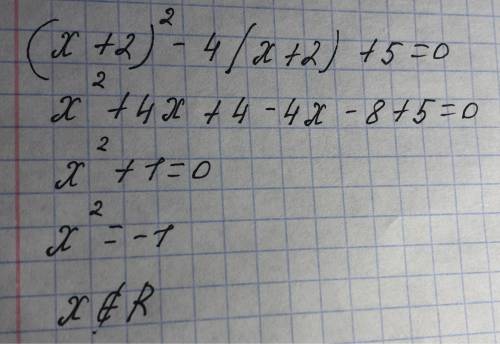 (x+2)² - 4(x+2) + 5 = 0
x² + 4x + 4 - 4x - 8 + 5 = 0
x² + 1 = 0
x² = -1
x ∉ R